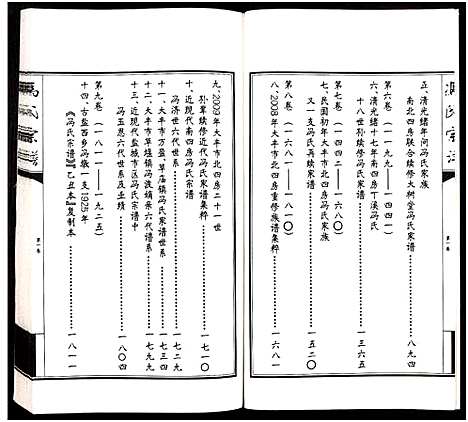 五、清光緒年间冯氏家族
南北四房联合续修大树堂冯氏家谱……八九四
第六卷（一一九九——一四四一）
六、清光緒十七年南四房丁溪冯氏
十八世孙续修冯氏家谱……一三六五
第七卷（一四四二——一六八〇）
七、民国初年大丰市北四房冯氏家族
又一支冯氏再续家谱……一五二〇
第八卷（一六八一——一八一〇）
八、2008年大丰市北四房重修族谱集粹……一六八一
九、2009大丰市北四房二十一世
孙辈续修近代冯氏家谱集粹……一七一〇
十、近现代南四房冯氏宗谱
冯济世六代世系……一七二九
十一、大丰市万盈、草庙镇冯氏家谱世系……一七三四
十二、大丰市草堰镇冯浚娋亲六代谱系……一七九九
十三、近现代盐城市区冯氏宗谱中
冯玉恩六代世系及业绩……一八〇四
第九卷（一八一一——一九二五）
十四、古盐西乡冯墩一支1925年
《冯氏宗谱》【乙丑本】复制本……一八一一
冯氏宗谱
第一卷
第一卷